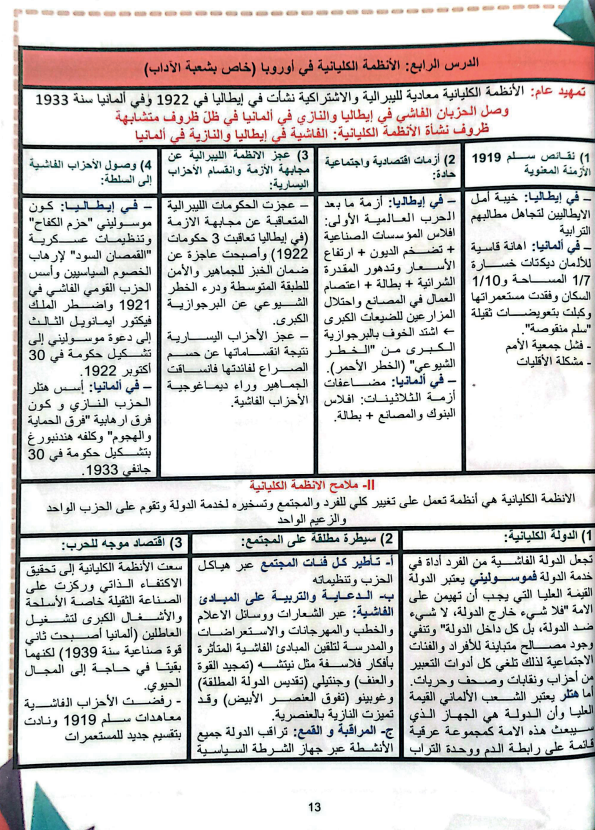 الدرس الرابع: الأنظمة الكليانية في أوروبا (خاص بشعبة الآداب)
تمهيد عام: الأنظمة الكليانية معادية لليبرالية والاشتراكية نشأت في إيطاليا في 1922 وفي ألمانيا سنة 1933
وصل الحزبان الفاشي في إيطاليا والنازي في ألمانيا في ظلّ ظروف متشابهة
ظروف نشأة الأنظمة الكليانية: الفاشية في إيطاليا والنازية في ألمانيا
1) نقائص سلم 1919
الأزمنة المعنوية
– في إيطاليا: خيبة أمل
الايطاليين لتجاهل مطالبهم
الترابية
– في ألمانيا: اهانة قاسية
للألمان ديكتات خسارة
1/7 المساحة و1/10
السكان وفقدت مستعمراتها
وكبلت بتعويضات ثقيلة
"سلم منقوصة".
- فشل جمعية الأمم
- مشكلة الأقليات
2) أزمات اقتصادية واجتماعية
حادة:
– في إيطاليا: أزمة ما بعد
الحرب العالمية الأولى:
افلاس المؤسسات الصناعية
+ تضخم الديون + ارتفاع
الأسعار وتدهور المقدرة
الشرائية + بطالة + اعتصام
العمال في المصانع واحتلال
المزارعين للضيعات الكبرى
← اشتد الخوف بالبرجوازية
الكبرى من "الخطر
الشيوعي" (الخطر الأحمر).
– في ألمانيا: مضاعفات
أزمة الثلاثينات: افلاس
البنوك والمصانع + بطالة.
3) عجز الانظمة الليبرالية عن
مجابهة الأزمة وانقسام الأحزاب
اليسارية:
– عجزت الحكومات الليبرالية
المتعاقبة عن مجابهة الازمة
(في إيطاليا تعاقبت 3 حكومات
1922) وأصبحت عاجزة عن
ضمان الخبز للجماهير والأمن
للطبقة المتوسطة ودرء الخطر
الشيوعي عن البرجوازية
الكبرى.
– عجز الأحزاب اليسارية
نتيجة انقساماتها عن حسم
الصراع لفائدتها فانساقت
الجماهير وراء ديماغوجية
الأحزاب الفاشية.
4) وصول الأحزاب الفاشية
إلى السلطة:
– في إيطاليا: كون
موسوليني "حزم الكفاح"
وتنظيمات عسكرية
"القمصان السود" لإرهاب
الخصوم السياسيين وأسس
الحزب القومي الفاشي في
1921 واضطر الملك
فيكتور ايمانويل الثالث
إلى دعوة موسوليني إلى
تشكيل حكومة في 30
أكتوبر 1922.
– في ألمانيا: أسس هتلر
الحزب النازي و كون
فرق ارهابية "فرق الحماية
والهجوم" وكلفه هندنبورغ
بتشكيل حكومة في 30
جانفي 1933.
II- ملامح الانظمة الكليانية
الانظمة الكليانية هي أنظمة تعمل على تغيير كلي للفرد والمجتمع وتسخيره لخدمة الدولة وتقوم على الحزب الواحد
والزعيم الواحد
1) الدولة الكليانية:
تجعل الدولة الفاشية من الفرد أداة في
خدمة الدولة فموسوليني يعتبر الدولة
القيمة العليا التي يجب أن تهيمن على
الامة "فلا شيء خارج الدولة، لا شيء
ضد الدولة، بل كل داخل الدولة" وتنفي
وجود مصالح متباينة للأفراد والفئات
الاجتماعية لذلك تلغي كل أدوات التعبير
من أحزاب ونقابات وصحف وحريات.
أما هتلر يعتبر الشعب الألماني القيمة
العليا وأن الدولة هي الجهاز الذي
سيبعث هذه الامة كمجموعة عرقية
قائمة على رابطة الدم ووحدة التراب
2) سيطرة مطلقة على المجتمع:
أ- تأطير كل فئات المجتمع عبر هياكل
الحزب وتنظيماته
ب- الدعاية والتربية على المبادئ
الفاشية: عبر الشعارات ووسائل الاعلام
والخطب والمهرجانات والاستعراضات
والمدرسة لتلقين المبادئ الفاشية المتأثرة
بأفكار فلاسفة مثل نيتشه (تمجيد القوة
والعنف) وجنتيلي (تقديس الدولة المطلقة)
وغوبينو (تفوق العنصر الأبيض) وقد
تميزت النازية بالعنصرية.
ج- المراقبة و القمع: تراقب الدولة جميع
الأنشطة عبر جهاز الشرطة السياسية
3) اقتصاد موجه للحرب:
سعت الأنظمة الكليانية إلى تحقيق
الاكتفاء الذاتي وركزت على
الصناعة الثقيلة خاصة الأسلحة
والأشغال الكبرى لتشغيل
العاطلين (ألمانيا أصبحت ثاني
قوة صناعية سنة 1939) لكنهما
بقيتا في حاجة إلى المجال
الحيوي.
- رفضت الأحزاب الفاشية
معاهدات سلم 1919 ونادت
بتقسيم جديد للمستعمرات
13